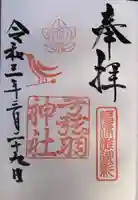 奉拝
弓弦羽
神社
令和三年三月二十九日